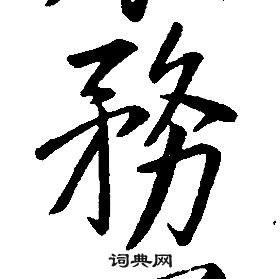 務
词典网